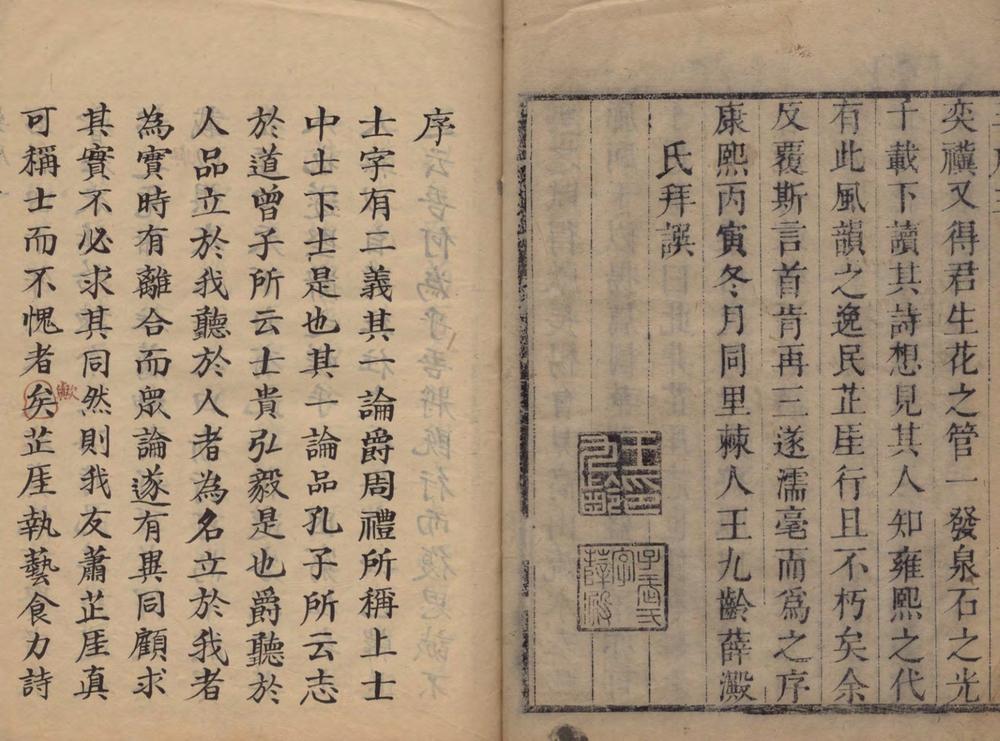 奕禩又得君生花之管一發泉石之光
千載下讀其詩想見其人知雍熙之代
有此風韻之逸民芷厓行且不朽矣余
反覆斯言首肯再三遂濡毫而爲之序
康熙丙寅冬月同里棘人王九齡薛澱
氏拜譔
序
士字有二義其一論爵周禮所稱上士
中士下士是也其一論品孔子所云志
於道曾子所云士貴弘毅是也爵聽於
人品立於我聽於人者為名立於我者
為實時有離合而眾論遂有異同顧求
其實不必求其同然則我友蕭芷厓真
可稱士而不愧者矣芷厓執藝食力詩
歟